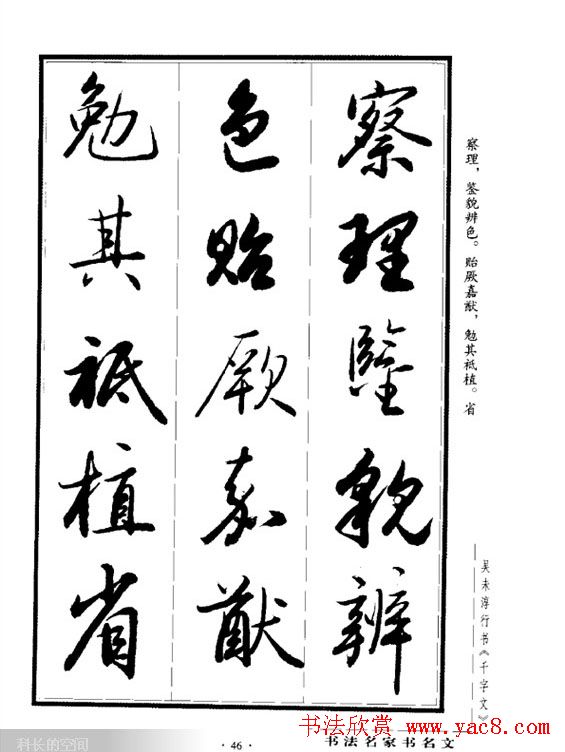 察理鑒貌辨
色貽厥嘉猷
勉其祗植省
察理，鉴貌辨色。贻厥嘉猷，勉其祗植。省
吴未淳行书《千字文》
·46·
书法名家书名文
书法欣赏 www.yac8.com
科长的空间